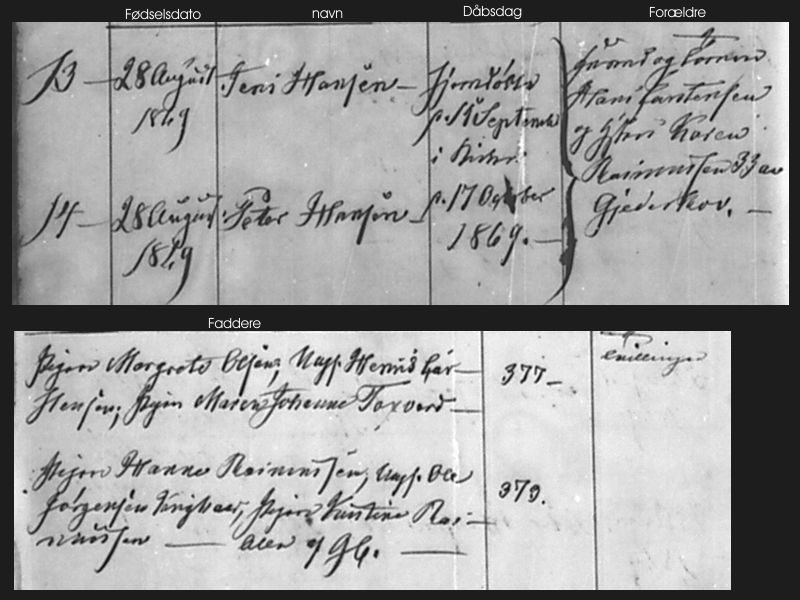 Fødselsdato navn Dåbsdag Forældre
13 — 28 August Jens Hansen — Hjemdøbt Huusmand og Tømrer
1869 p. 18 Septemb Hans Carstensen
i Kirke. og Hustru Karen
Rasmussen 33 aar
14 — 28 August Peter Hansen — p. 17 October Gjederkov. —
1869 1869. —
Faddere
Pigen Margrete Olsen, Ungk. Hans Car- 377 — tvillinger
stensen, Pigen Maren Johanne Toxverd —
Pigen Hanne Rasmussen, Ungk. Ole 379.
Jørgensen Pigen Kirstine Ras-
mussen — alle af Gk. —